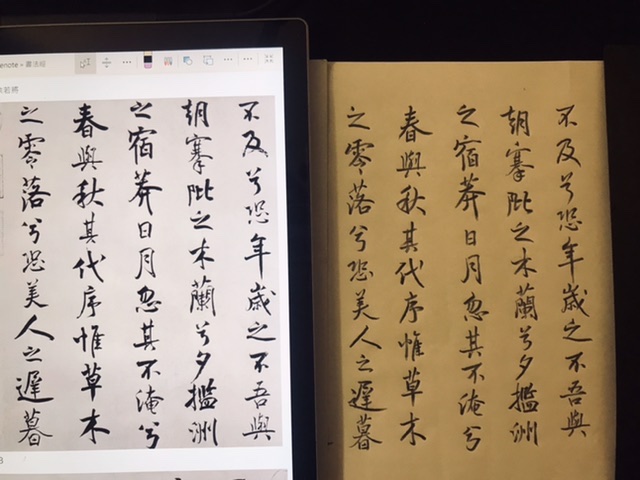 enote » 書法經
若將
不及兮恐年歲之不吾與
朝搴阰之木蘭兮夕攬洲
之宿莽日月忽其不淹兮
春與秋其代序惟草木
之零落兮恐美人之遲暮
不及兮恐年歲之不吾與
朝搴阰之木蘭兮夕攬洲
之宿莽日月忽其不淹兮
春與秋其代序惟草木
之零落兮恐美人之遲暮